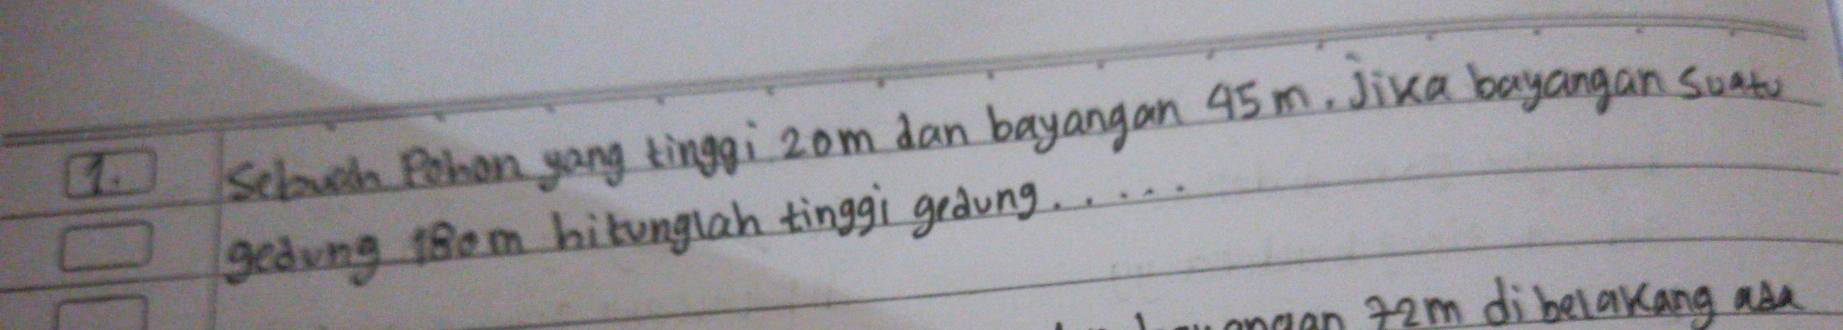 1. Sebuah Pohon yang tinggi 20m dan bayangan 45 m. Jika bayangan suatu
gedung 180m hitunglah tinggi gedung.....
72m di belakang ada